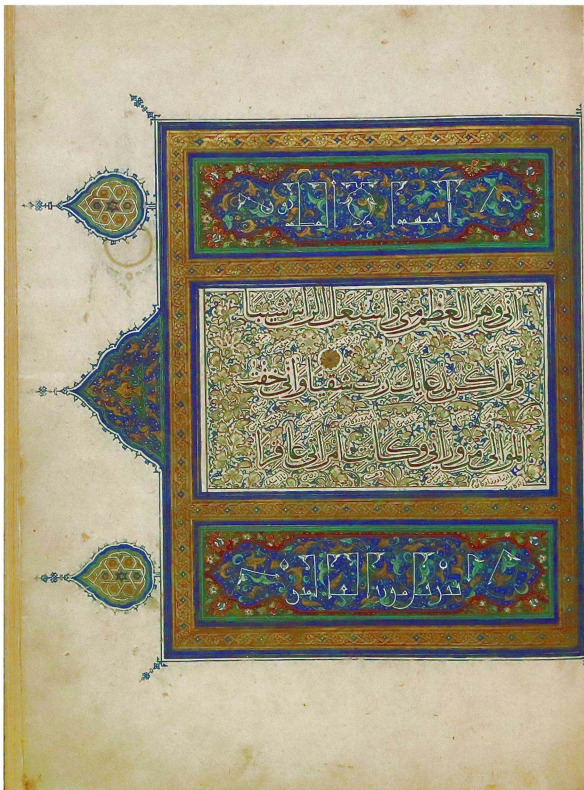 لا يمسه الا المطهرون
انى وهن العظم منى واشتعل الراس شيبا
ولم اكن بدعائك رب شقيا وانى خفت
الموالى من ورائى وكانت امراتى عاقرا
تنزيل من رب العالمين